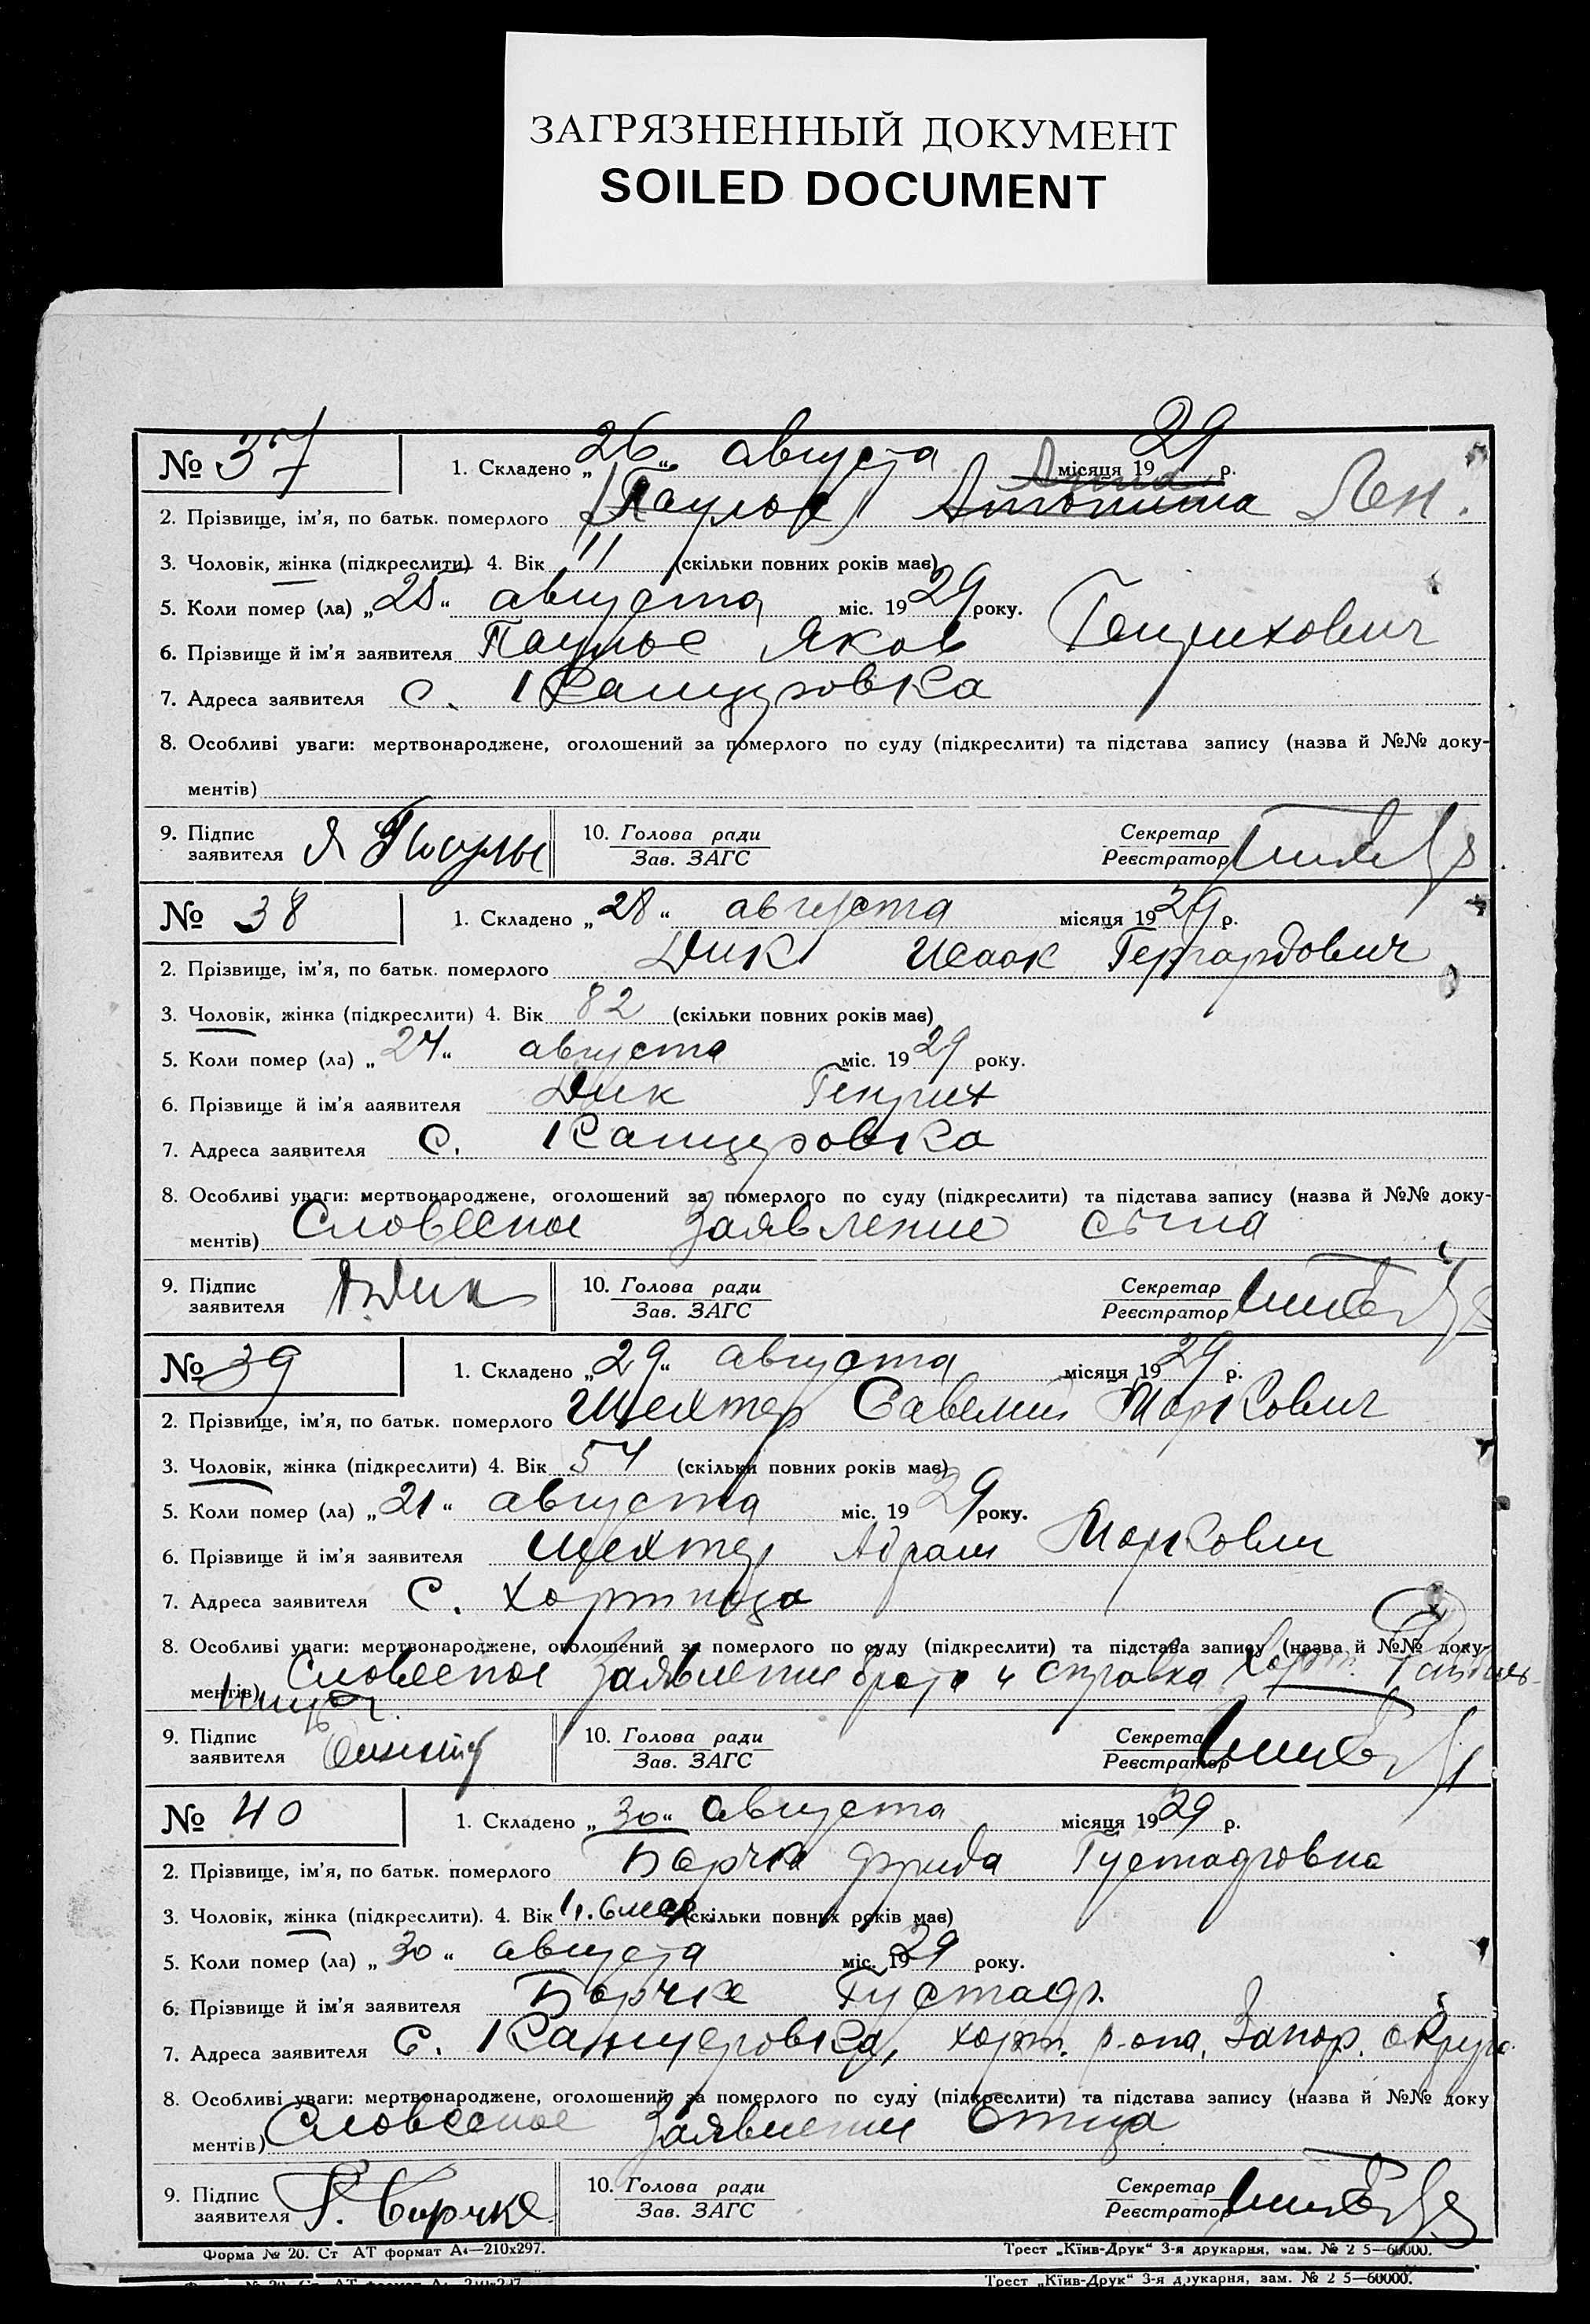 ЗАГРЯЗНЕННЫЙ ДОКУМЕНТ
SOILED DOCUMENT
№ 37
1. Складено „26“ августа місяця 1929 р.
2. Прізвище, ім'я, по батьк. померлого Паульс Антонина
3. Чоловік, жінка (підкреслити) 4. Вік 11 (скільки повних років має)
5. Коли помер (ла) „25“ августа міс. 1929 року.
6. Прізвище й ім'я заявителя Паульс Яков Генрихович
7. Адреса заявителя с. Канцеровка
8. Особливі уваги: мертвонароджене, оголошений за померлого по суду (підкреслити) та підстава запису (назва й №№ доку-
ментів)
9. Підпис заявителя Я Паульс
10. Голова ради
Зав. ЗАГС
Секретар
Реєстратор
№ 38
1. Складено „28“ августа місяця 1929 р.
2. Прізвище, ім'я, по батьк. померлого Дик Исаак Гергардович
3. Чоловік, жінка (підкреслити) 4. Вік 82 (скільки повних років має)
5. Коли помер (ла) „27“ августа міс. 1929 року.
6. Прізвище й ім'я ааявителя Дик Генрих
7. Адреса заявителя с. Канцеровка
8. Особливі уваги: мертвонароджене, оголошений за померлого по суду (підкреслити) та підстава запису (назва й №№ доку-
ментів) Словесное Заявление сына
9. Підпис заявителя Дик
10. Голова ради
Зав. ЗАГС
Секретар
Реєстратор
№ 39
1. Складено „29“ августа місяця 1929 р.
2. Прізвище, ім'я, по батьк. померлого Шехтер Савелий Маркович
3. Чоловік, жінка (підкреслити) 4. Вік 57 (скільки повних років має)
5. Коли помер (ла) „21“ августа міс. 1929 року.
6. Прізвище й ім'я заявителя Шехтер Абрам Маркович
7. Адреса заявителя с. Хортица
8. Особливі уваги: мертвонароджене, оголошений за померлого по суду (підкреслити) та підстава запису (назва й №№ доку-
ментів) Словесное Заявление брата и справка Хорт.
9. Підпис заявителя
10. Голова ради
Зав. ЗАГС
Секретар
Реєстратор
№ 40
1. Складено „30“ августа місяця 1929 р.
2. Прізвище, ім'я, по батьк. померлого Борчке Фрида Густафовна
3. Чоловік, жінка (підкреслити). 4. Вік 1 г. 6 мес. (скільки повних років має)
5. Коли помер (ла) „30“ августа міс. 1929 року.
6. Прізвище й ім'я заявителя Борчке Густаф.
7. Адреса заявителя с. Канцеровка, Хорт. р-она, Запор. округа
8. Особливі уваги: мертвонароджене, оголошений за померлого по суду (підкреслити) та підстава запису (назва й №№ доку
ментів) Словесное Заявление Отца
9. Підпис заявителя Г. Борчке
10. Голова ради
Зав. ЗАГС
Секретар
Реєстратор
Форма № 20. Ст АТ формат А4—210х297.
Трест „Київ-Друк“ 3-я друкарня, зам. № 2 5—60000.
Трест „Київ-Друк“ 3-я друкарня, зам. № 2 5—60000.